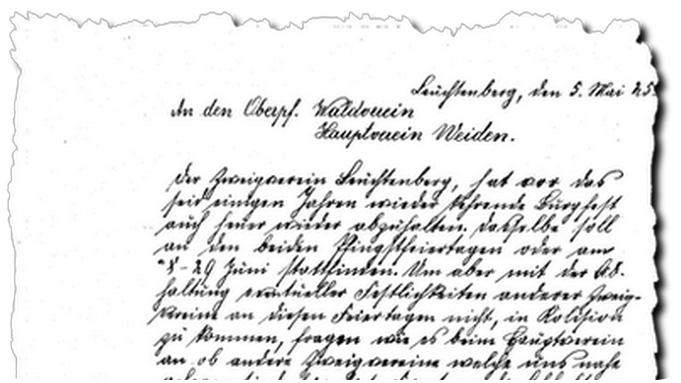 Leuchtenberg, den 5. Mai 25.
An den Oberpf. Waldverein
Hauptverein Weiden.
Der Zweigverein Leuchtenberg, hat vor das
seid einigen Jahren wieder kehrende Burgfest
auch heuer wieder abzuhalten. Dasselbe soll
an den beiden Pfingstfeiertagen oder am
29 Juni stattfinden. Um aber mit der Ab-
haltung eventueller Festlichkeiten anderer Zweig-
vereine an diesen Feiertagen nicht, in Kolision
zu kommen, fragen wir es beim Hauptverein
an ob andere Zweigvereine welche uns nahe